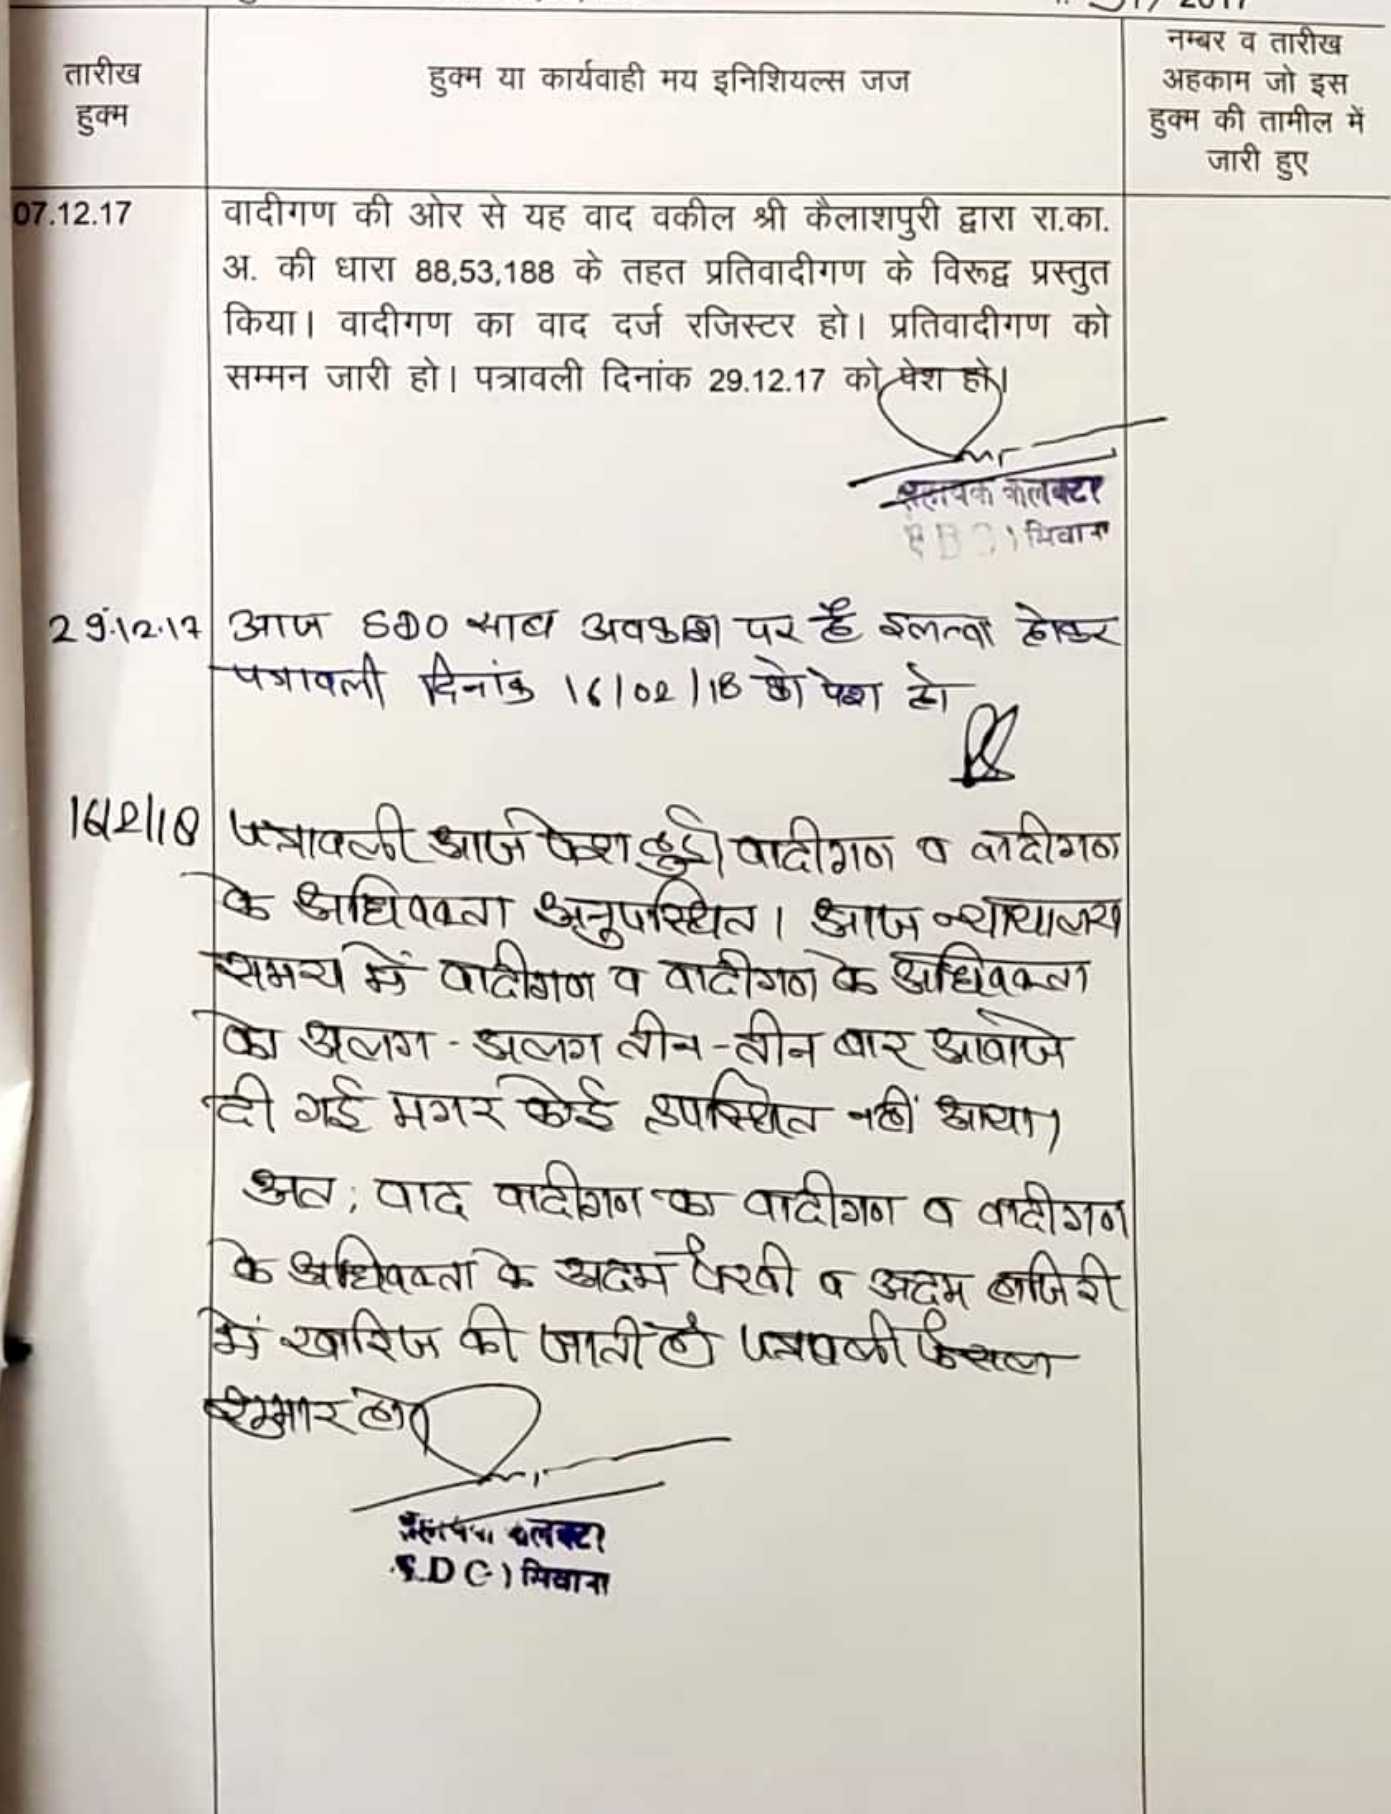 2017
तारीख
हुक्म
हुक्म या कार्यवाही मय इनिशियल्स जज
नम्बर व तारीख
अहकाम जो इस
हुक्म की तामील में
जारी हुए
07.12.17
वादीगण की ओर से यह वाद वकील श्री कैलाशपुरी द्वारा रा.का.
अ. की धारा 88,53,188 के तहत प्रतिवादीगण के विरूद्व प्रस्तुत
किया। वादीगण का वाद दर्ज रजिस्टर हो। प्रतिवादीगण को
सम्मन जारी हो। पत्रावली दिनांक 29.12.17 को पेश हो।
सहायक कलक्टर
सिवाना
29.12.17
आज SDO साब अवकाश पर है होकर
पत्रावली दिनांक 16/02/18 को पेश हो
16/2/18
पत्रावली आज पेश हुई। वादीगण व वादीगण
के अधिवक्ता अनुपस्थित। आज न्यायालय
समय में वादीगण व वादीगण के अधिवक्ता
को अलग - अलग तीन - तीन बार आवाजे
दी गई मगर कोई उपस्थित नहीं आया।
अत: वाद वादीगण का वादीगण व वादीगण
के अधिवक्ता के अदम पैरवी व अदम हाजिरी
में खारिज की जाती है पत्रावली फैसला
शुमार हो।
सहायक कलक्टर
(S.D.O.) सिवाना